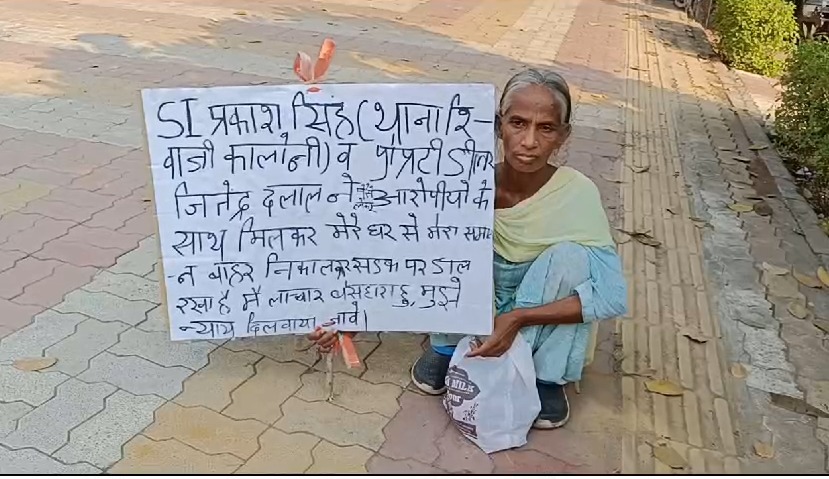 SI प्रकाश सिंह (थाना शि-
वाजी कालोनी) व प्रोप्रटी डीलर
जितेंद्र दलाल ने आरोपीयो के
साथ मिलकर मेरे घर से मेरा समा
-न बाहर निकालकर सडक पर डाल
रखा है मैं लाचार बेसहारा हु, मुझे
न्याय दिलवाया जावे।
MILK